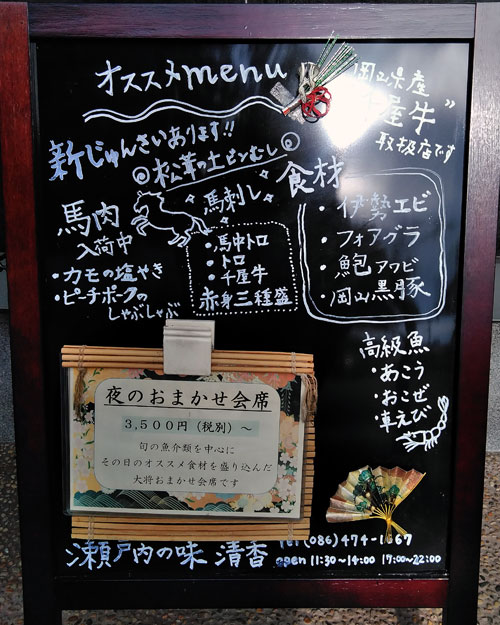 オススメmenu
岡山県産
屋牛”
取扱店です
新じゅんさいあります!!
松茸の土ビンむし
馬肉
入荷中
・カモの塩やき
・ピーチポークの
しゃぶしゃぶ
馬刺し
・馬中トロ
・トロ
・千屋牛
赤身三種盛
食材
・伊勢エビ
・フォアグラ
・鮑アワビ
・岡山黒豚
高級魚
・あこう
・おこぜ
・車えび
夜のおまかせ会席
3,500円（税別）～
旬の魚介類を中心に
その日のオススメ食材を盛り込んだ
大将おまかせ会席です
瀬戸内の味 清香
Tel (086)474-1667
open 11:30~14:00 17:00~22:00